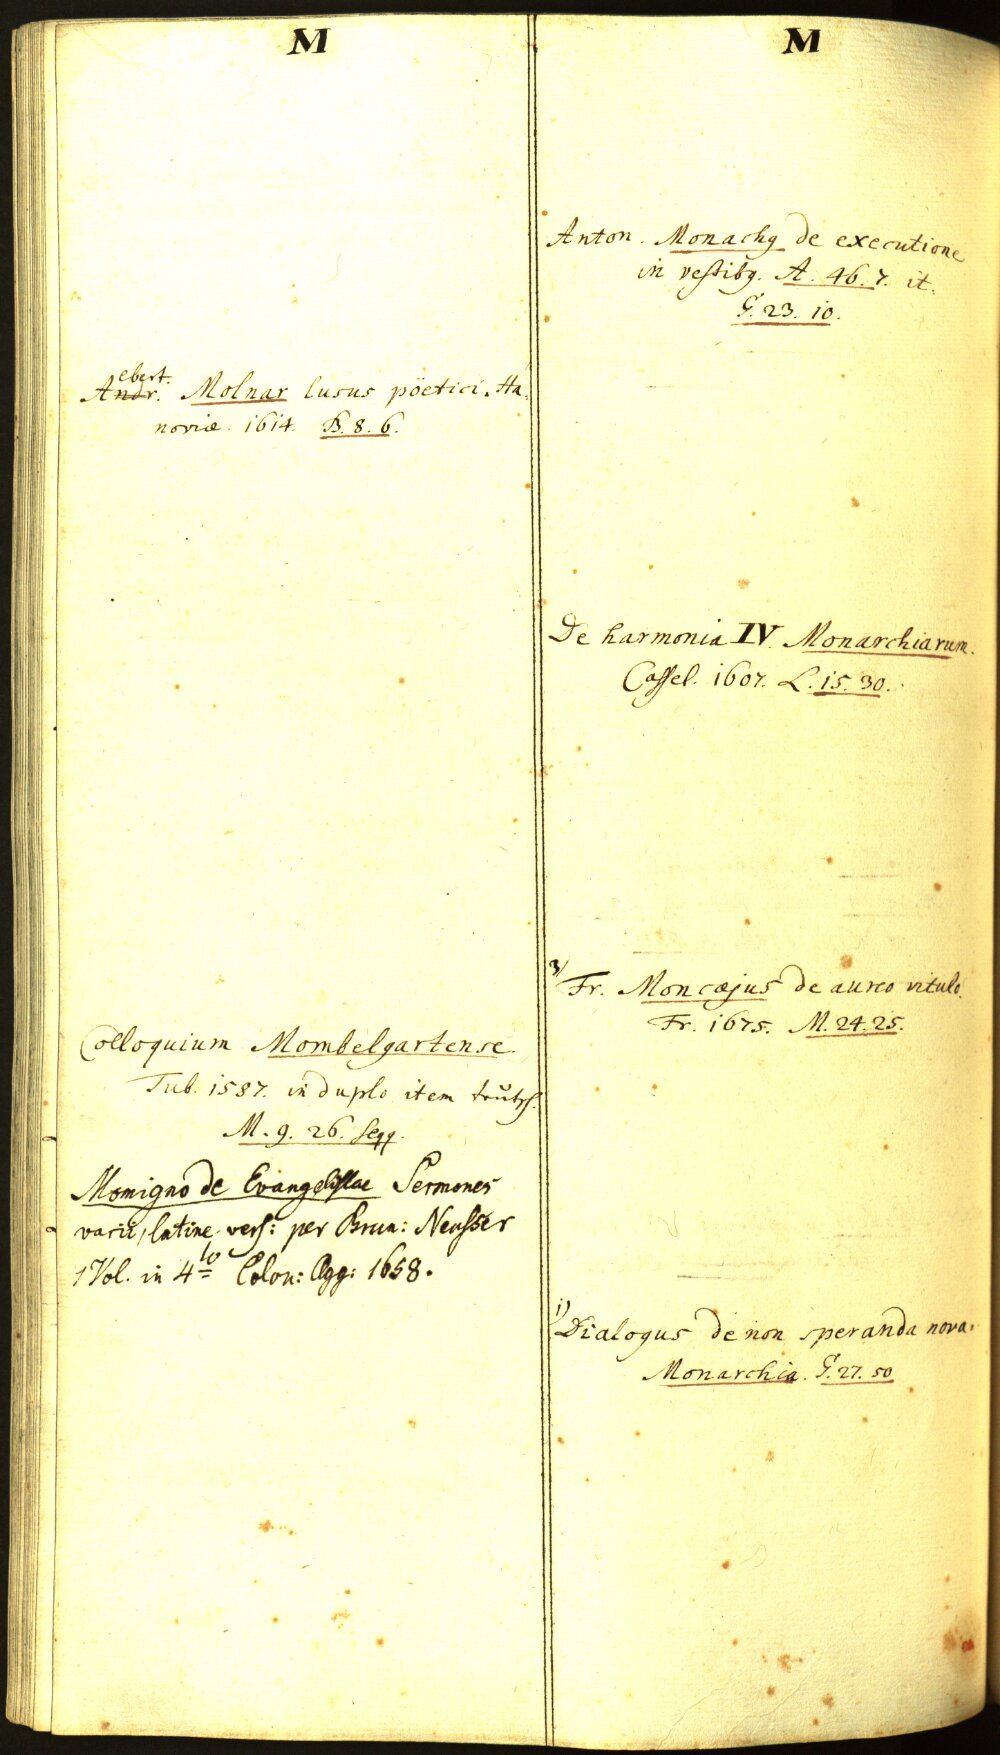 M
ebert.
Andr. Molnar lusus pöetici. Ha,
noviæ. 1614. B. 8. 6.
Colloquium Mombelgartense.
Tub. 1587. in duplo item teütsch.
M. 9. 26. seqq.
Momigno de Evangelistae Sermones
varii, latine vers: per Brun: Neusser
1 Vol. in 4to Colon: Agg: 1658.
M
Anton. Monachg de executione
in vestibg. A. 46. 7. it.
G. 23. 10.
De harmonia IV. Monarchiarum.
Cassel. 1607. L. 15. 30.
3) Fr. Moncæjus de aureo vitulo.
Fr. 1675. M. 24. 25.
1) Dialogus de non speranda nova
Monarchia. G. 27. 50